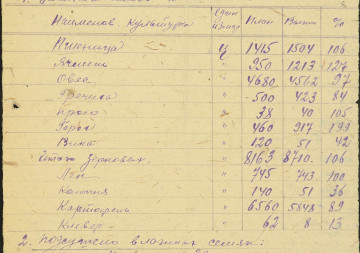 Наименов. культуры Един. измер. План Выполн %
Пшеница ц 1415 1504 106
Ячмень " 950 1213 127
Овес " 4680 4562 97
Гречиха " 500 423 84
Просо " 38 40 105
Горох " 460 917 199
Вика " 120 51 42
Итого зерновых " 8163 8710 106
Лен " 745 743 100
Конопля " 140 51 36
Картофель " 6560 5848 89
Клевер " 62 8 13
2. Засыпано в запас семян: